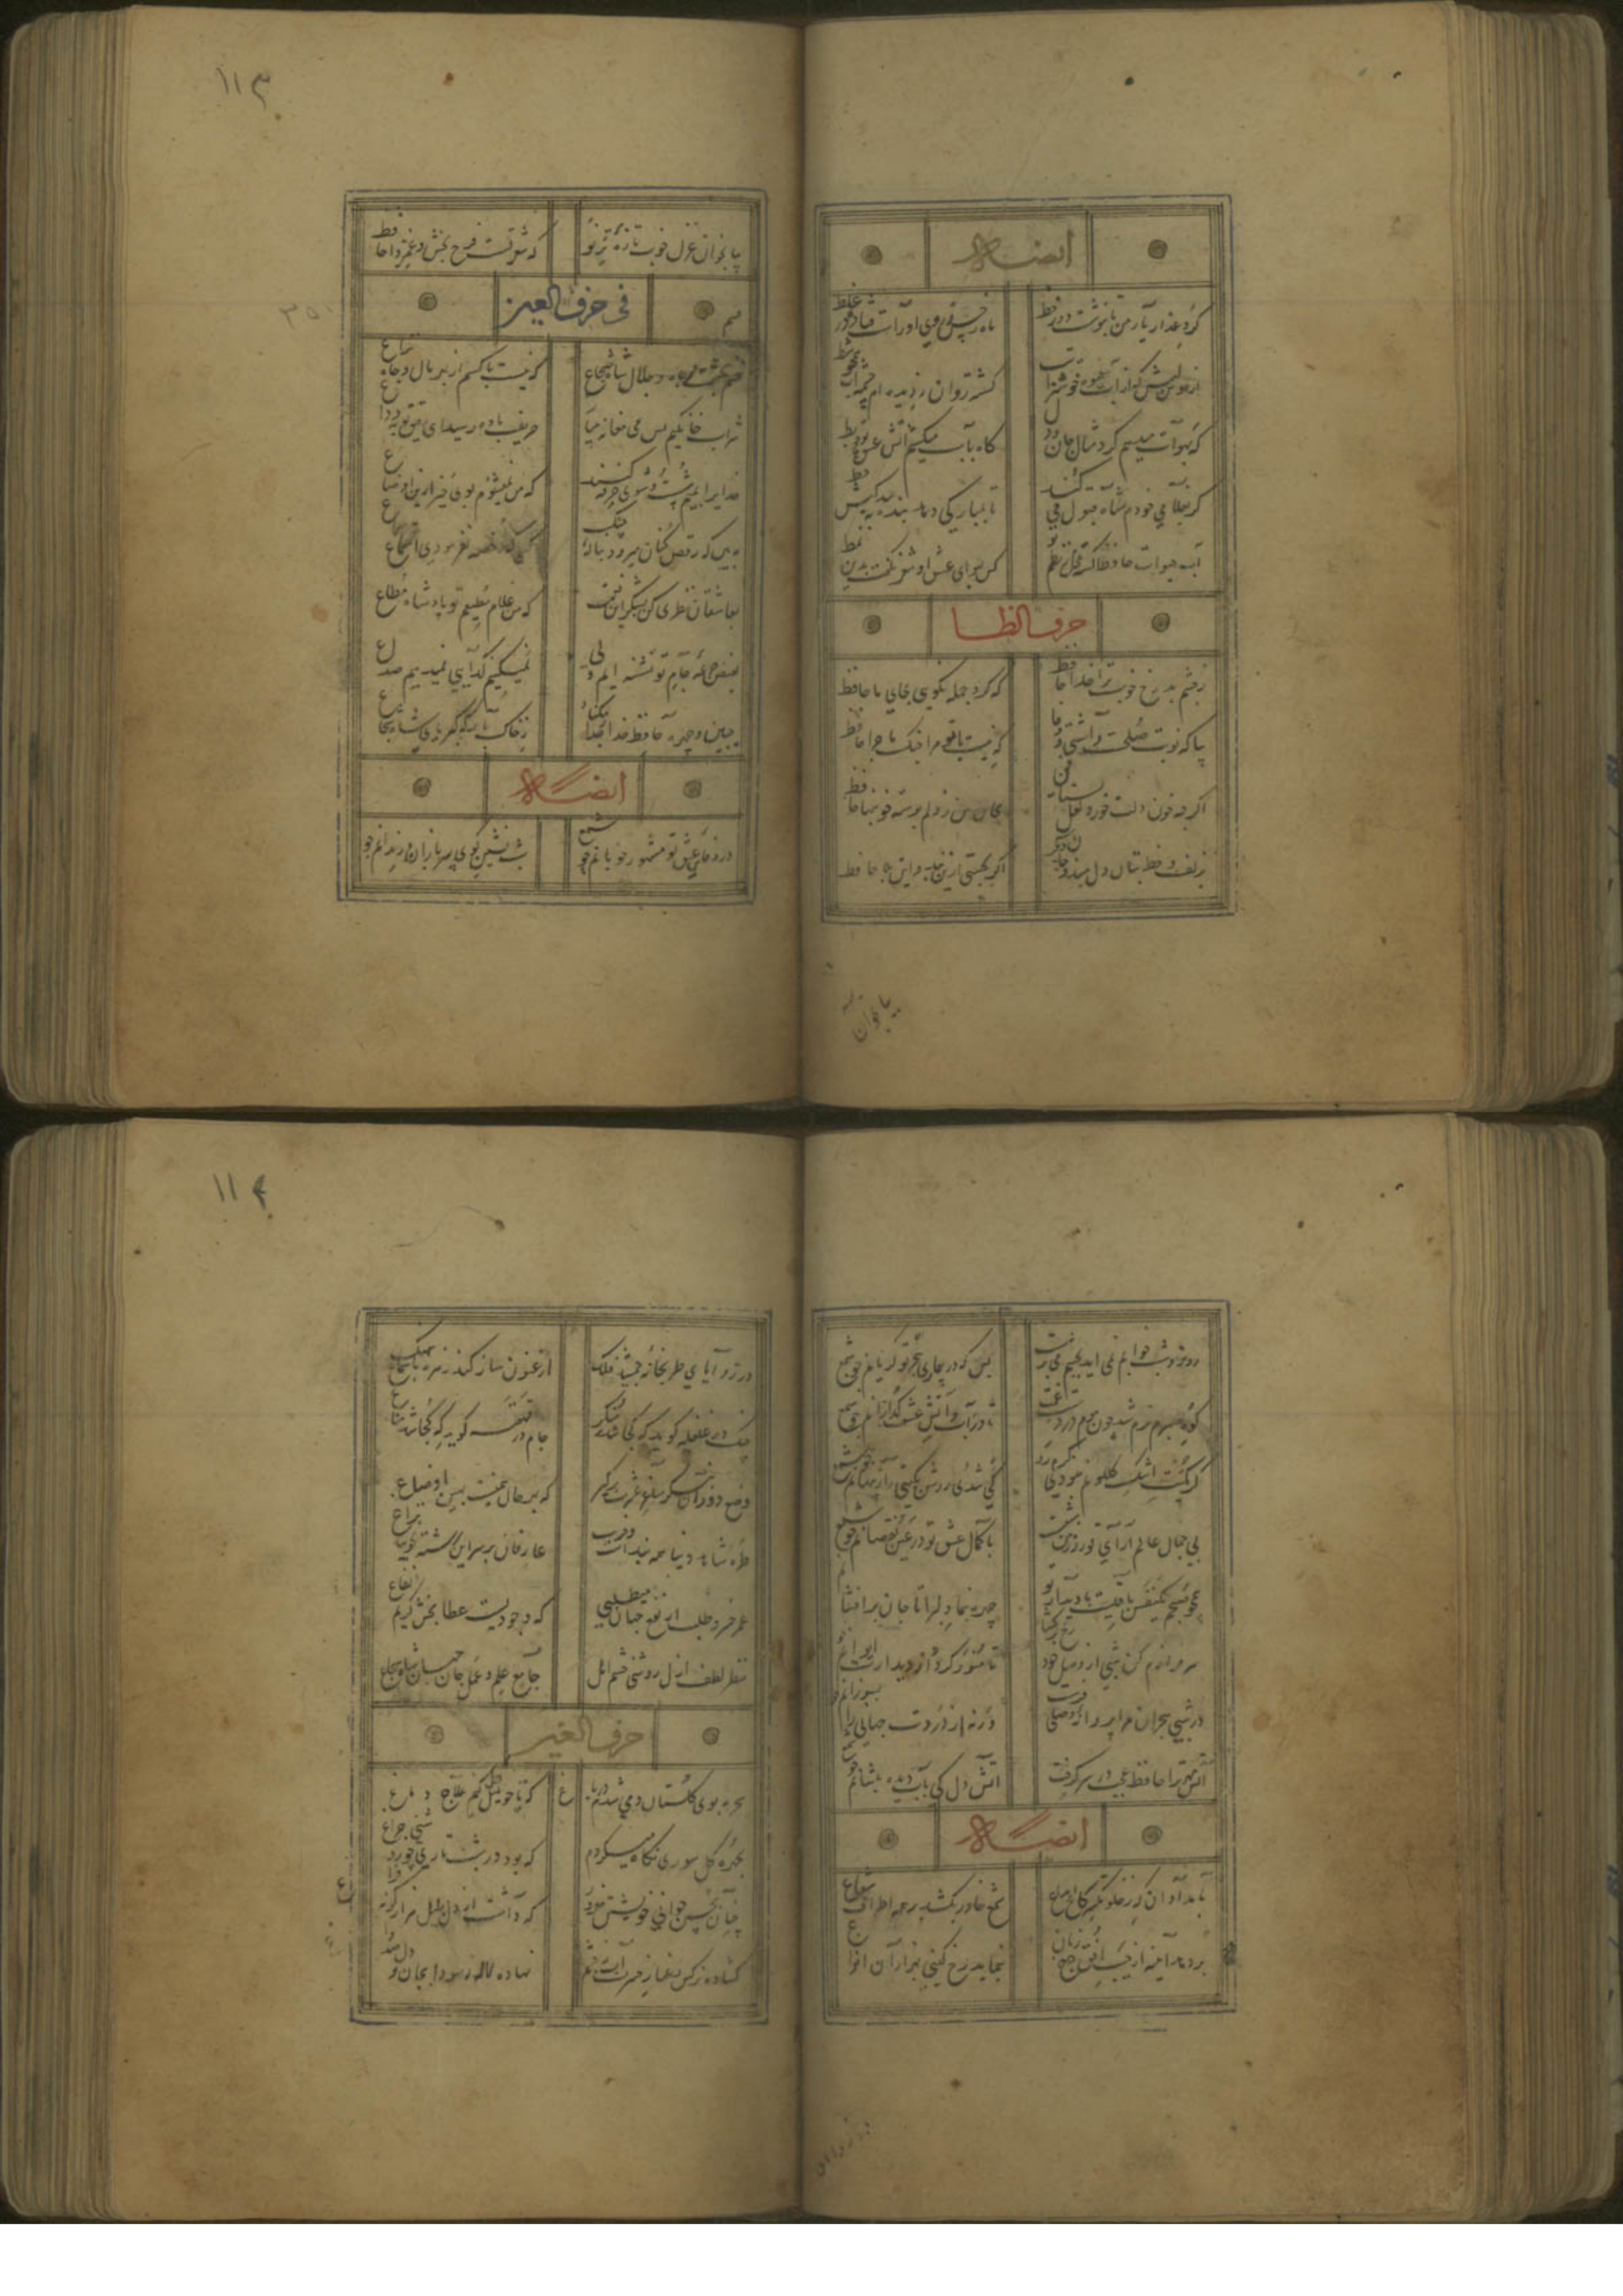 ایضاً له
گرد عذار یار من تا بنوشت دور خط
ماه ز حسن روی او راست فتاد در غلط
از هوس لبش که از آب حیات خوشترا ست
گشت روان ز دیده ام چشمه آب همچو شط
گه بهوات میدهم گرد مثال جان و دل
گاه بآب میکشم آتش عشق تو چو بط
گر بغلامی خودم شاه قبول می کند
تا بمبارکی دهد بنده به بندگیش خط
آب حیات حافظا گشته خجل ز نظم تو
کس بهوای عشق او شعر نگفت بدین نمط
حرف الظا
ز چشم بد رخ خوب ترا خدا حافظ
که کرد جمله نکویی بجای ما حافظ
بیا که نوبت صلحست و آشتی و وفا
که نیست با تو مرا جنگ و ماجرا حافظ
اگر چه خون دلت خورد لعل من بستان
بجان من ز دلم بوسه خونبها حافظ
بزلف و خط بتان دل مبند دیگر
اگر بجستی ازین بلا حافظ
بیا بخوان
۱۱۳
بیا بخوان غزل خوب تازه تر نو
که شعر تست فرح بخش و غمزدا حافظ
فی حرف العین
قسم بحشمت و جاه و جلال شاه شجاع
که نیست با کسم از بهر مال و جاه نزاع
شراب خانگیم بس می مغانه بیا
حریف باده رسید ای رفیق توبه وداع
خدایرا بمیم شست و شوی خرقه کنید
که من نمیشنوم بوی خیر ازین اوضاع
ببین که رقص کنان میرود بناله چنگ
کسی که رخصه نفرمودی استماع
بعاشقان نظری کن بشکر این نعمت
که من غلام مطیعم تو پادشاه مطاع
بفیض جرعه جام تو تشنه ایم ولی
نمیکنیم گدایی نمیدهیم صداع
جبین و چهره حافظ خدا جدا مکناد
ز خاک بارگه کبریای شاه شجاع
ایضاً له
در وفای عشق تو مشهور خوبانم چو شمع
شب نشین کوی سربازان و رندانم چو
روز و شب خوابم نمی آید بچشم غم پرست
بس که در بیماری هجر تو گریانم چو شمع
کوه صبرم نرم شد چون موم در دست غمت
تا در آب و آتش عشقت گدازانم چو شمع
گر کمیت اشک گلگونم نبودی گرم رو
کی شدی روشن بگیتی راز پنهانم چو شمع
بی جمال عالم آرای تو روزم چون شبست
با کمال عشق تو در عین نقصانم چو شمع
همچو صبحم یکنفس باقیست با دیدار تو
چهره بنما دلبرا تا جان برافشانم
سرفرازم کن شبی از وصل خود
تا منور گردد از دیدارت ایوانم
در شب هجران مرا پروانه وصلی فرست
ورنه از دردت جهانی را بسوزانم
آتش مهر ترا حافظ عجب در سر گرفت
آتش دل کی بآب دیده بنشانم چو شمع
ایضاً له
بامدادان که ز خلوتگه کاخ ابداع
شمع خاور بکشد بر همه اطراف شعاع
بردمد آینه از جیب افق چرخ زنان
بنماید رخ گیتی بهزاران انواع
۱۱۴
در زوایای طربخانه جمشید فلک
ارغنون ساز کند زهره بآهنگ سماع
چنگ در غلغله گوید که کجا شد منکر
جام در قهقهه گوید که کجا شد مناع
وضع دوران بنگر ساغر عشرت برگیر
که بهر حال همینست بهین اوضاع
طره شاهد دنیا همه بندست و فریب
عارفان بر سر این رشته نجویند نزاع
عمر خسرو طلب ار نفع جهان میطلبی
که وجودیست عطا بخش کریم نفاع
مظهر لطف ازل روشنی چشم امل
جامع علم و عمل جان جهان شاه شجاع
حرف الغین
سحر ببوی گلستان دمی شدم در باغ
که تا چو بلبل بیدل کنم علاج دماغ
بچهره گل سوری نگاه میکردم
که بود در شب تاری چو روشنی چراغ
چنان بحسن و جوانی خویشتن مغرور
که داشت از دل بلبل هزار گونه فراغ
گشاده نرگس رعنا ز حسرت آب از چشم
نهاده لاله ز سودا بجان و دل صد